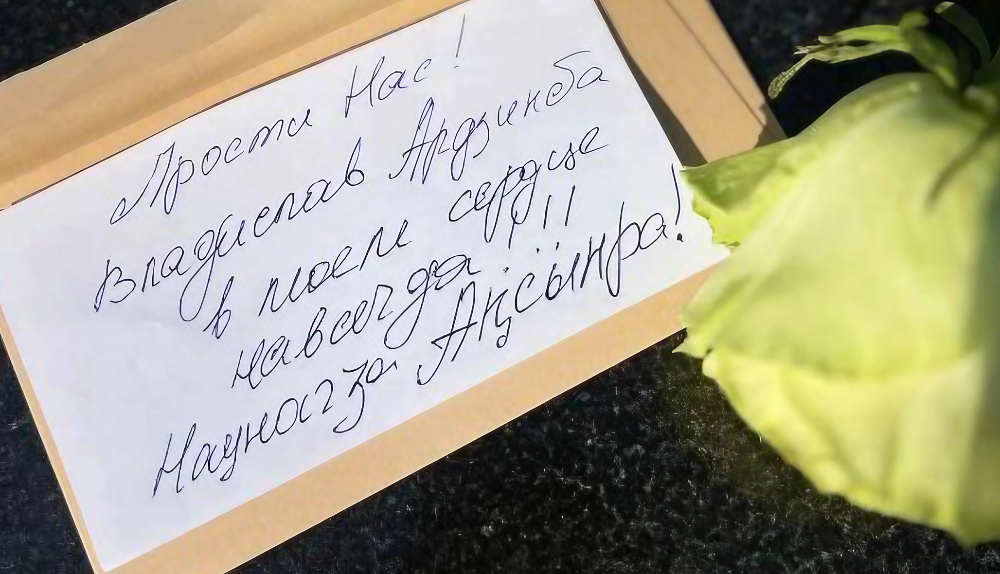 Прости Нас!
Владислав Ардзинба
в моем сердце
навсегда!!!
Наунагӡа Аҧсынра!